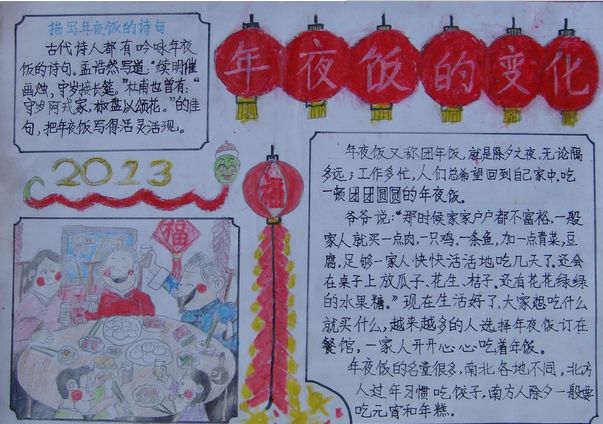 描写年夜饭的诗句
古代诗人都有吟咏年夜
饭的诗句。孟浩然写道:“续明催
画烛,守岁接长筵。”杜甫也曾有:“
守岁阿戎家,椒盘以颂花。”的佳
句,把年夜饭写得活灵活现。
年夜饭的变化
2013
福
福
年夜饭又称团年饭,就是除夕之夜,无论隔
多远,工作多忙,人们总希望回到自己家中,吃
一顿团团圆圆的年夜饭。
爷爷说:“那时候家家户户都不富裕,一般
家人就买一点肉,一只鸡,一条鱼,加一点青菜,豆
腐,足够一家人快快活活地吃几天了,还会
在桌子上放瓜子、花生、桔子,还有花花绿绿
的水果糖。”现在生活好了,大家想吃什么
就买什么,越来越多的人选择年夜饭订在
餐馆,一家人开开心心吃着年饭。
年夜饭的名堂很多,南北各地不同,北方
人过年习惯吃饺子,南方人除夕一般要
吃元宵和年糕。